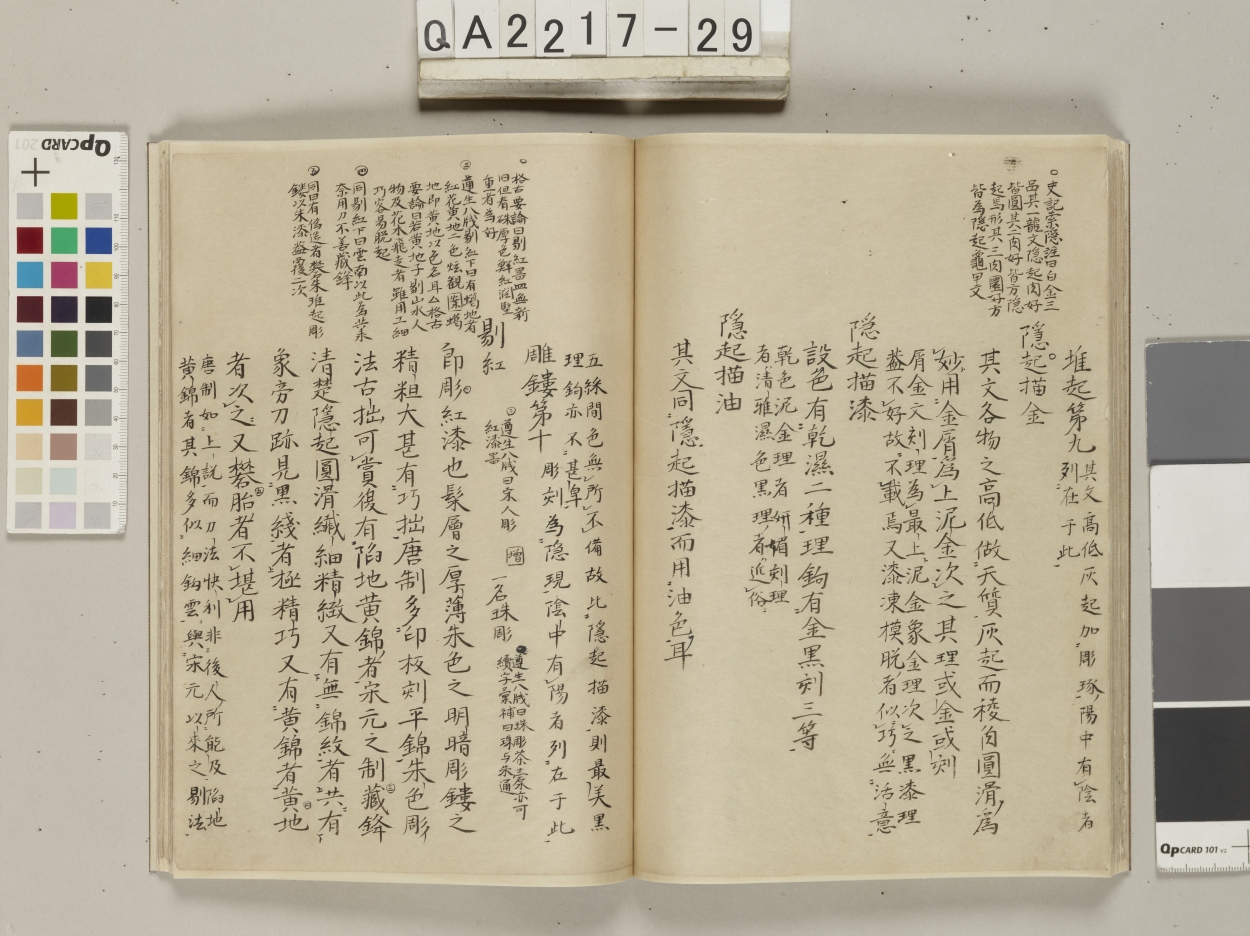 QA2217-29
QPCARD 201
QPCARD 101 v2
○史記索隠註曰白金三
品其一龍文隠起肉好
皆圓其二肉好皆方隠
起馬形其三肉圓好方
皆為隠起龜甲文
堆起第九
其文高低灰起加彫琢陽中有陰者
列在于此
隠起描金
其文各物之高低做天質灰起而稜角圓滑為
妙用金屑為上泥金次之其理或金或刻
屑金文刻理為最上泥金象金理次之黒漆理
盖不好故不載焉又漆凍模脱者似巧無活意
隠起描漆
設色有乾濕二種理鉤有金黒刻三等
乾色泥金理者妍媚刻理
者清雅濕色黒理者近俗
隠起描油
其文同隠起描漆而用油色耳
五綵間色無所不備故比隠起描漆則最美黒
理鉤亦不甚卑
雕鏤第十
彫刻為隠現陰中有陽者列在于此
○格古要論曰剔紅器皿無新
旧但看硃厚色鮮紅潤堅
重者為好
剔紅
㊀遵生八牋曰宋人彫
紅漆器
増
一名珠彫
遵生八牋曰珠彫茶橐亦可
續字彙補曰珠与朱通
㊂遵生八牋剔紅下曰有錫地者
紅花黄地二色炫観
地即黄地以色名耳
要論曰若黄地子剔山水人
物及花木飛走者雖用工細
巧容易脱起
㊃同剔紅下曰雲南以此為業
奈用刀不善藏鋒
㊄同曰有偽造者礬朱堆起彫
鏤以朱漆盖覆二次
即彫紅漆也髹層之厚薄朱色之明暗彫鏤之
精粗大甚有巧拙唐制多印板刻平錦朱色彫
法古拙可賞後有陷地黄錦者宋元之制藏鋒
清楚隠起圓滑纖細精緻又有無錦紋者共有
象旁刀跡見黒綫者極精巧又有黄錦者黄地
者次之又礬胎者不堪用
唐制如上説而刀法快利非後人所能及陷地
黄錦者其錦多似細鉤雲與宋元以来之剔法